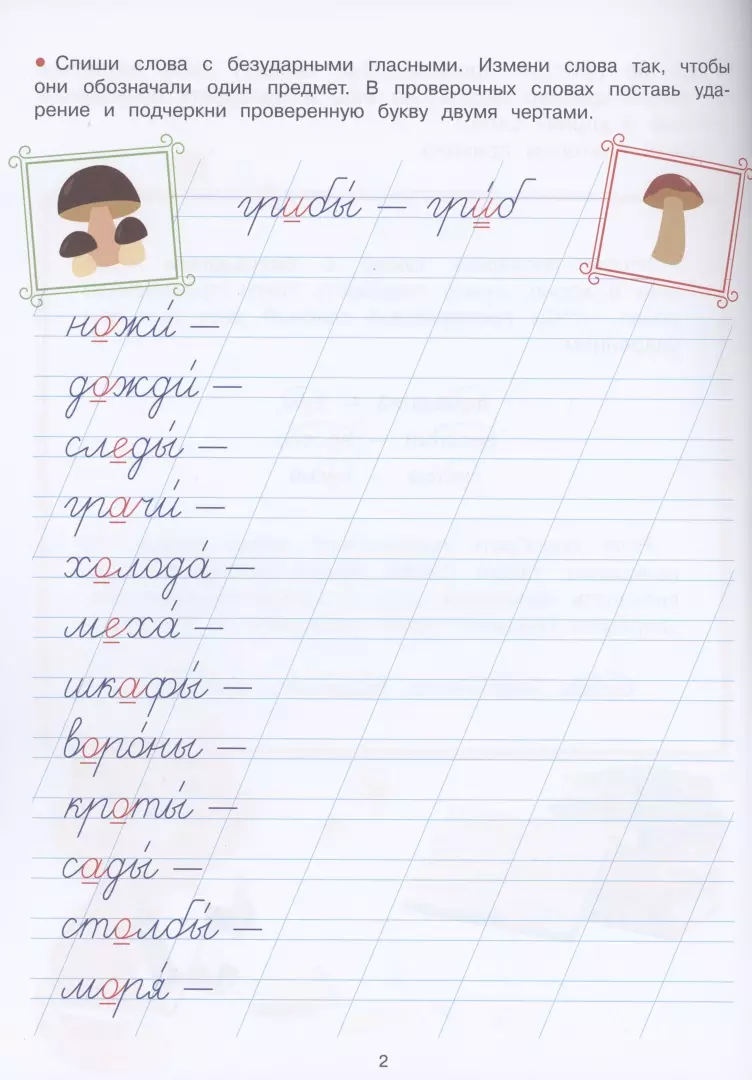 • Спиши слова с безударными гласными. Измени слова так, чтобы
они обозначали один предмет. В проверочных словах поставь уда-
рение и подчеркни проверенную букву двумя чертами.
грибы́ — гри́б
ножи́ —
дожди́ —
следы́ —
грачи́ —
холода́ —
меха́ —
шкафы́ —
воро́ны —
кроты́ —
сады́ —
столбы́ —
моря́ —
2